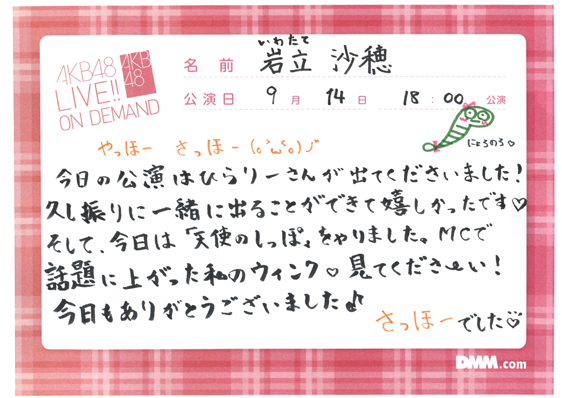 AKB48
LIVE!!
ON DEMAND
AKB
48
いわたて
名前 岩立 沙穂
公演日 9月 14日 18:00 公演
にょろのろ♡
やっほー さっほー(o`ω´o)ﾉ"
今日の公演はひらりーさんが出てくださいました!
久し振りに一緒に出ることができて嬉しかったです♡
そして、今日は「天使のしっぽ」をやりました。MCで
話題に上がった私のウィンク♡ 見てくださーい!
今日もありがとうございました♪
さっほーでした♡
DMM.com